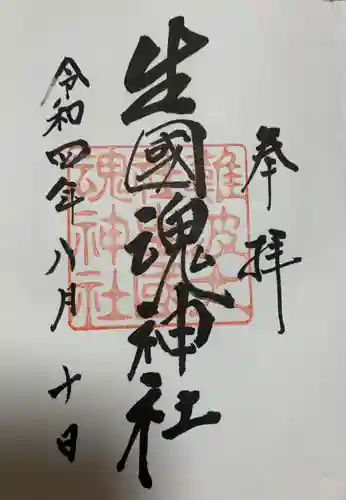 奉拝
生國魂神社
令和四年八月十日
難波大
社生國
魂神社